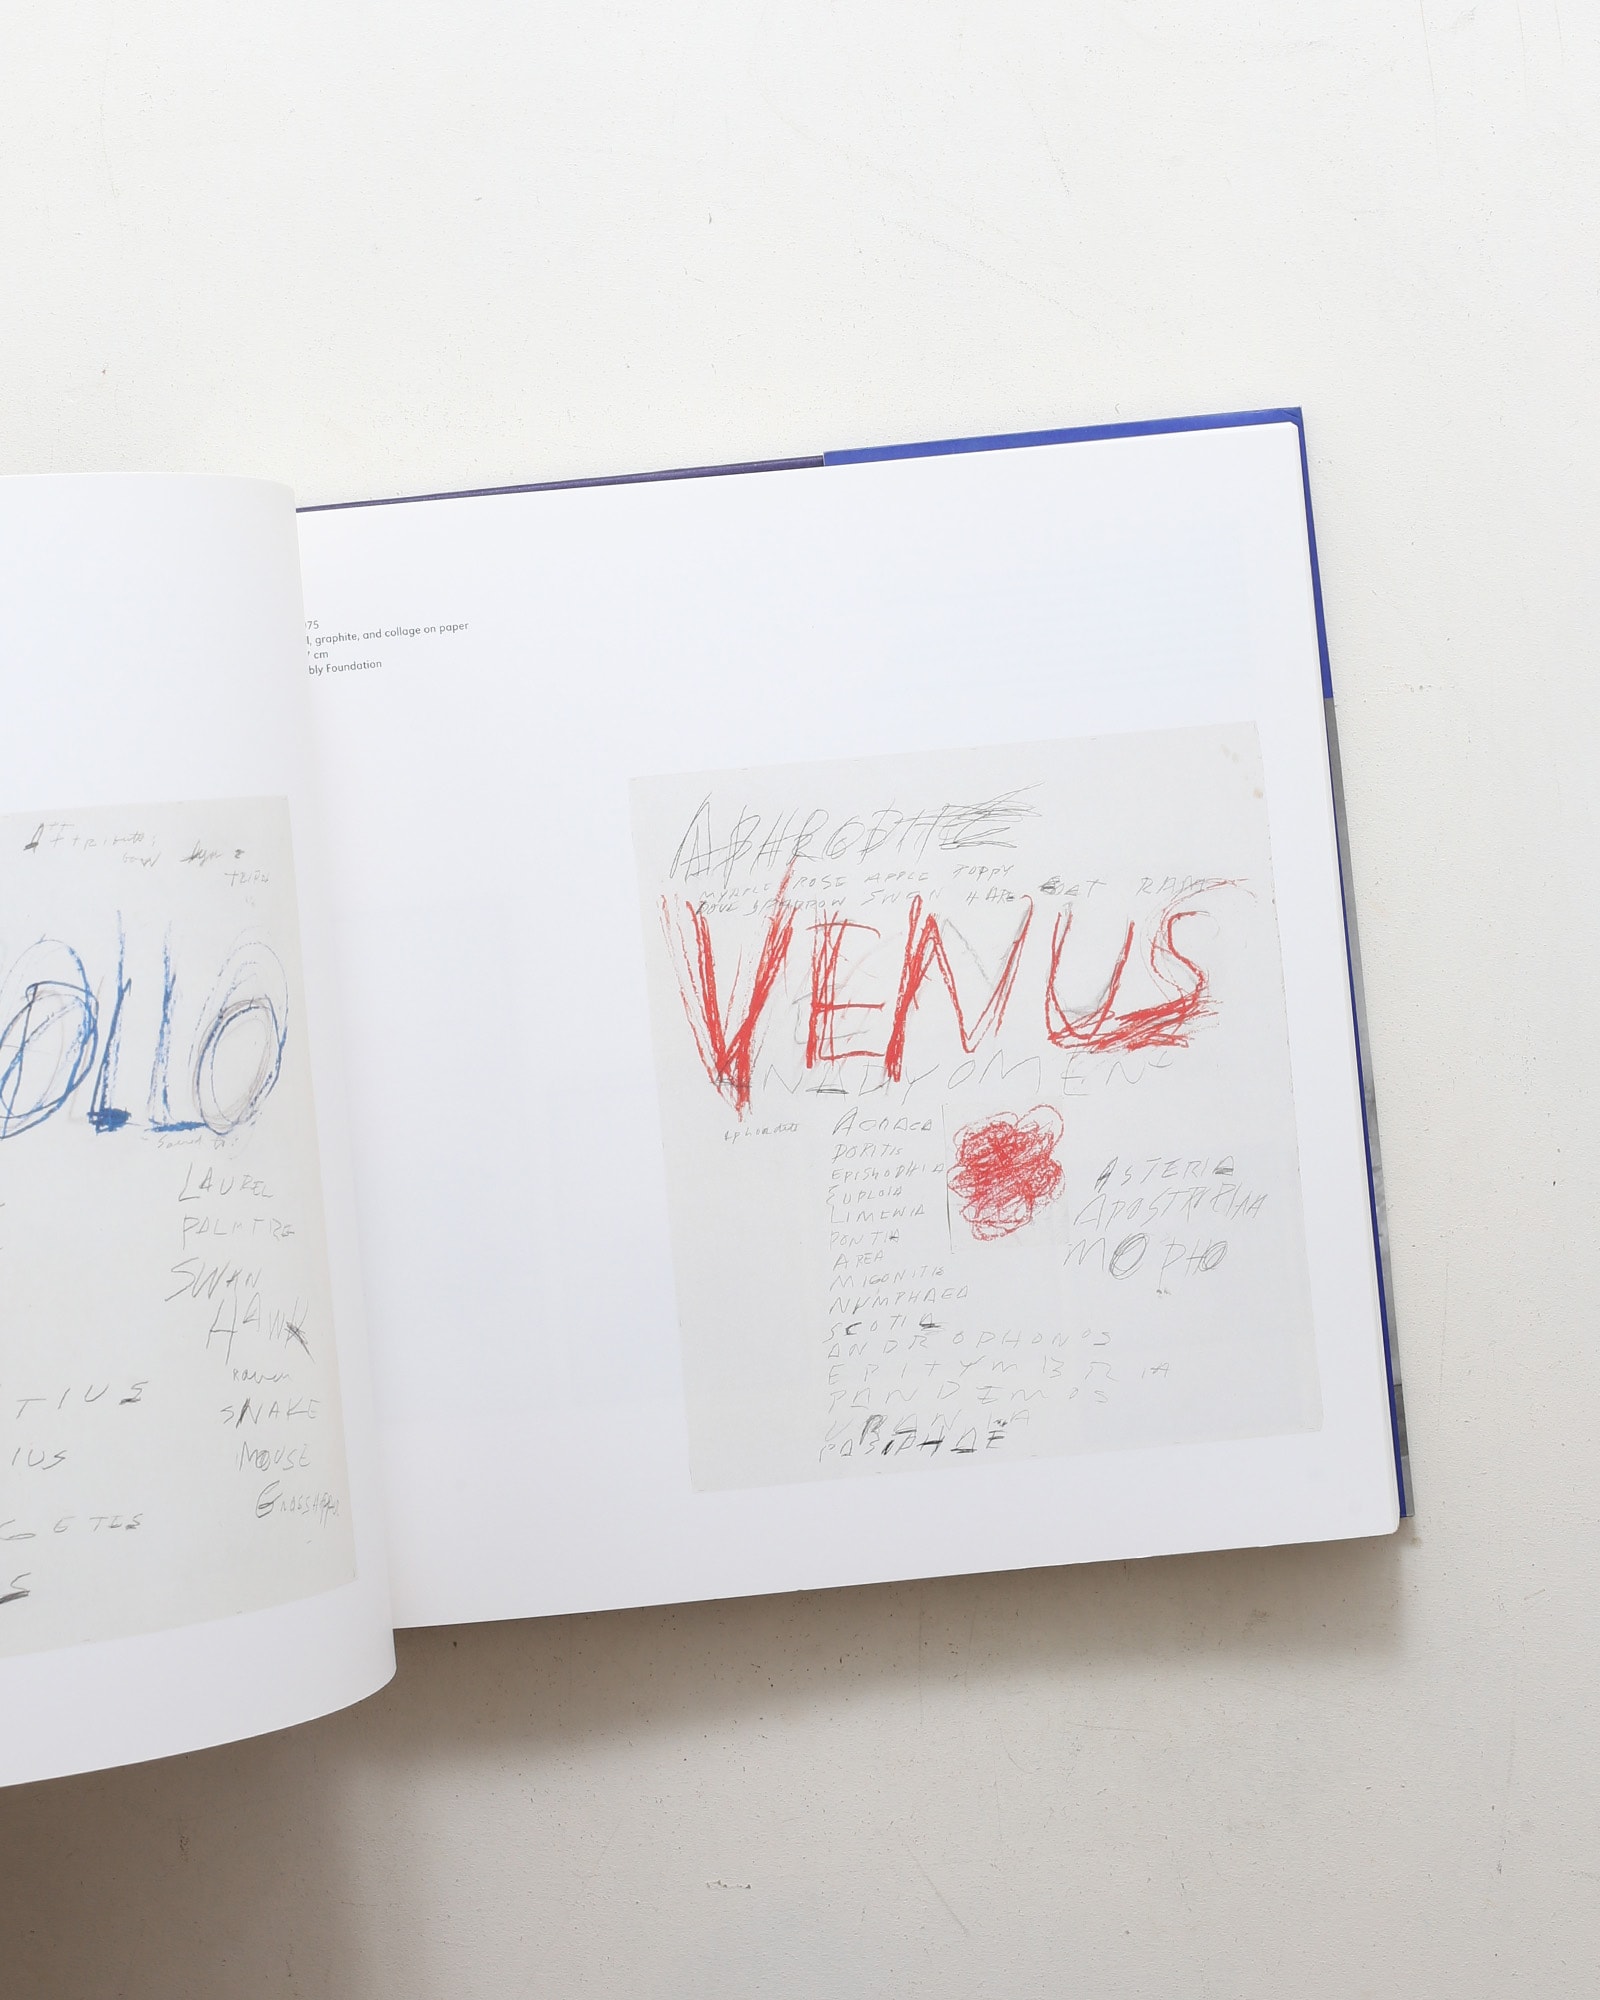 Attributes
bow
OLLO
LAUREL
PALMTRE
SWAN
HAWK
Raven
SNAKE
MOUSE
TIUS
IUS
GETES
S
75
l, graphite, and collage on paper
7 cm
bly Foundation
APHRODITE
MYRTLE ROSE APPLE POPPY
DOVE SPARROW SWAN HARE GOAT RAM
VENUS
ANADYOMENE
DORITIS
EUPLOIA
LIMENIA
PONTIA
AREA
MIGONITIS
NYMPHAEA
SCOTIA
ANDROPHONOS
EPITYMBRIA
PANDEMOS
URANIA
PASIPHAE
ASTERIA
APOSTROPHIA
MOPHO